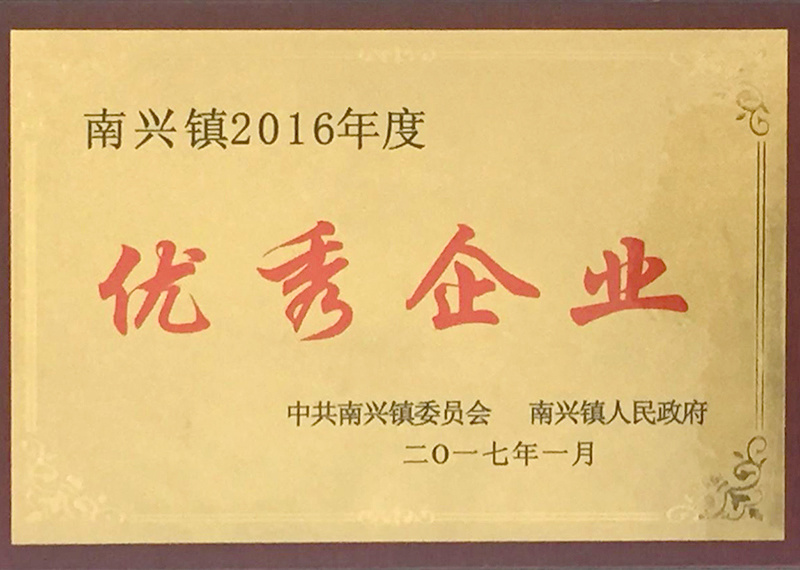 南兴镇2016年度
优秀企业
中共南兴镇委员会 南兴镇人民政府
二〇一七年一月